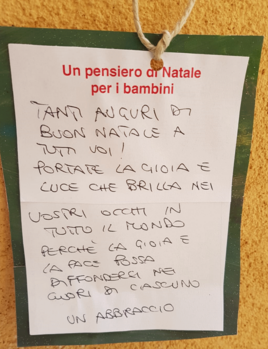 Un pensiero di Natale
per i bambini
TANTI AUGURI DI
BUON NATALE A
TUTTI VOI!
PORTATE LA GIOIA E
LUCE CHE BRILLA NEI
VOSTRI OCCHI IN
TUTTO IL MONDO
PERCHÈ LA GIOIA E
LA PACE POSSA
DIFFONDERSI NEI
CUORI DI CIASCUNO
UN ABBRACCIO